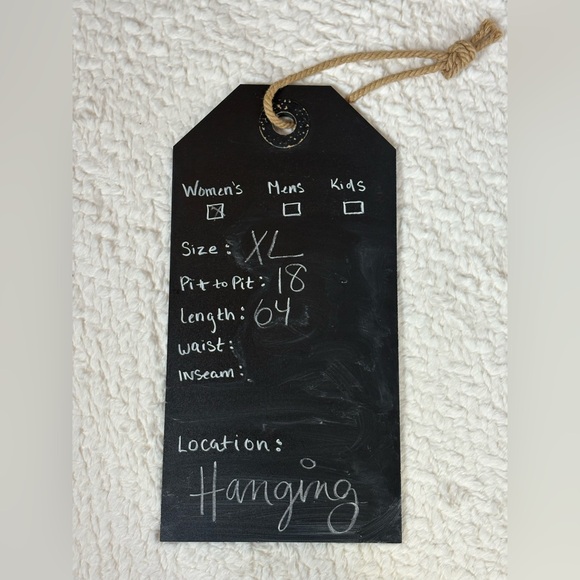 Women's Mens Kids
Size: XL
Pit to Pit: 18
Length: 64
Waist:
Inseam:
Location:
Hanging